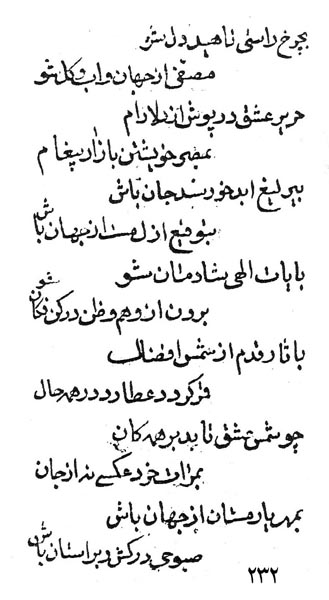 بچرخ راستی ناهید دل شو
مصفی از جهان و اب و کل شو
حریر عشق در پوش از دلارام
بمصر خویشتن باز ار پیغام
بیرلیغ ابد خورسند جان باش
بتوقیع ازل مست از جهان باش
بایات الهی شادمان شو
برون از وهم و ظن در کن فکان شو
باثار قدم از شمس افضال
قمر کرد و عطارد در همه حال
چو شمس عشق تابد بر همه کان
بمرات خرد عکسی نه از جان
بمهر یار مستان از جهان باش
صبوحی درکش و بر استان باش
۲۳۲